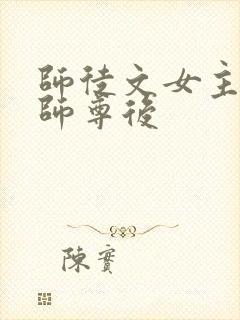 師徒文女主
師尊後
陳實